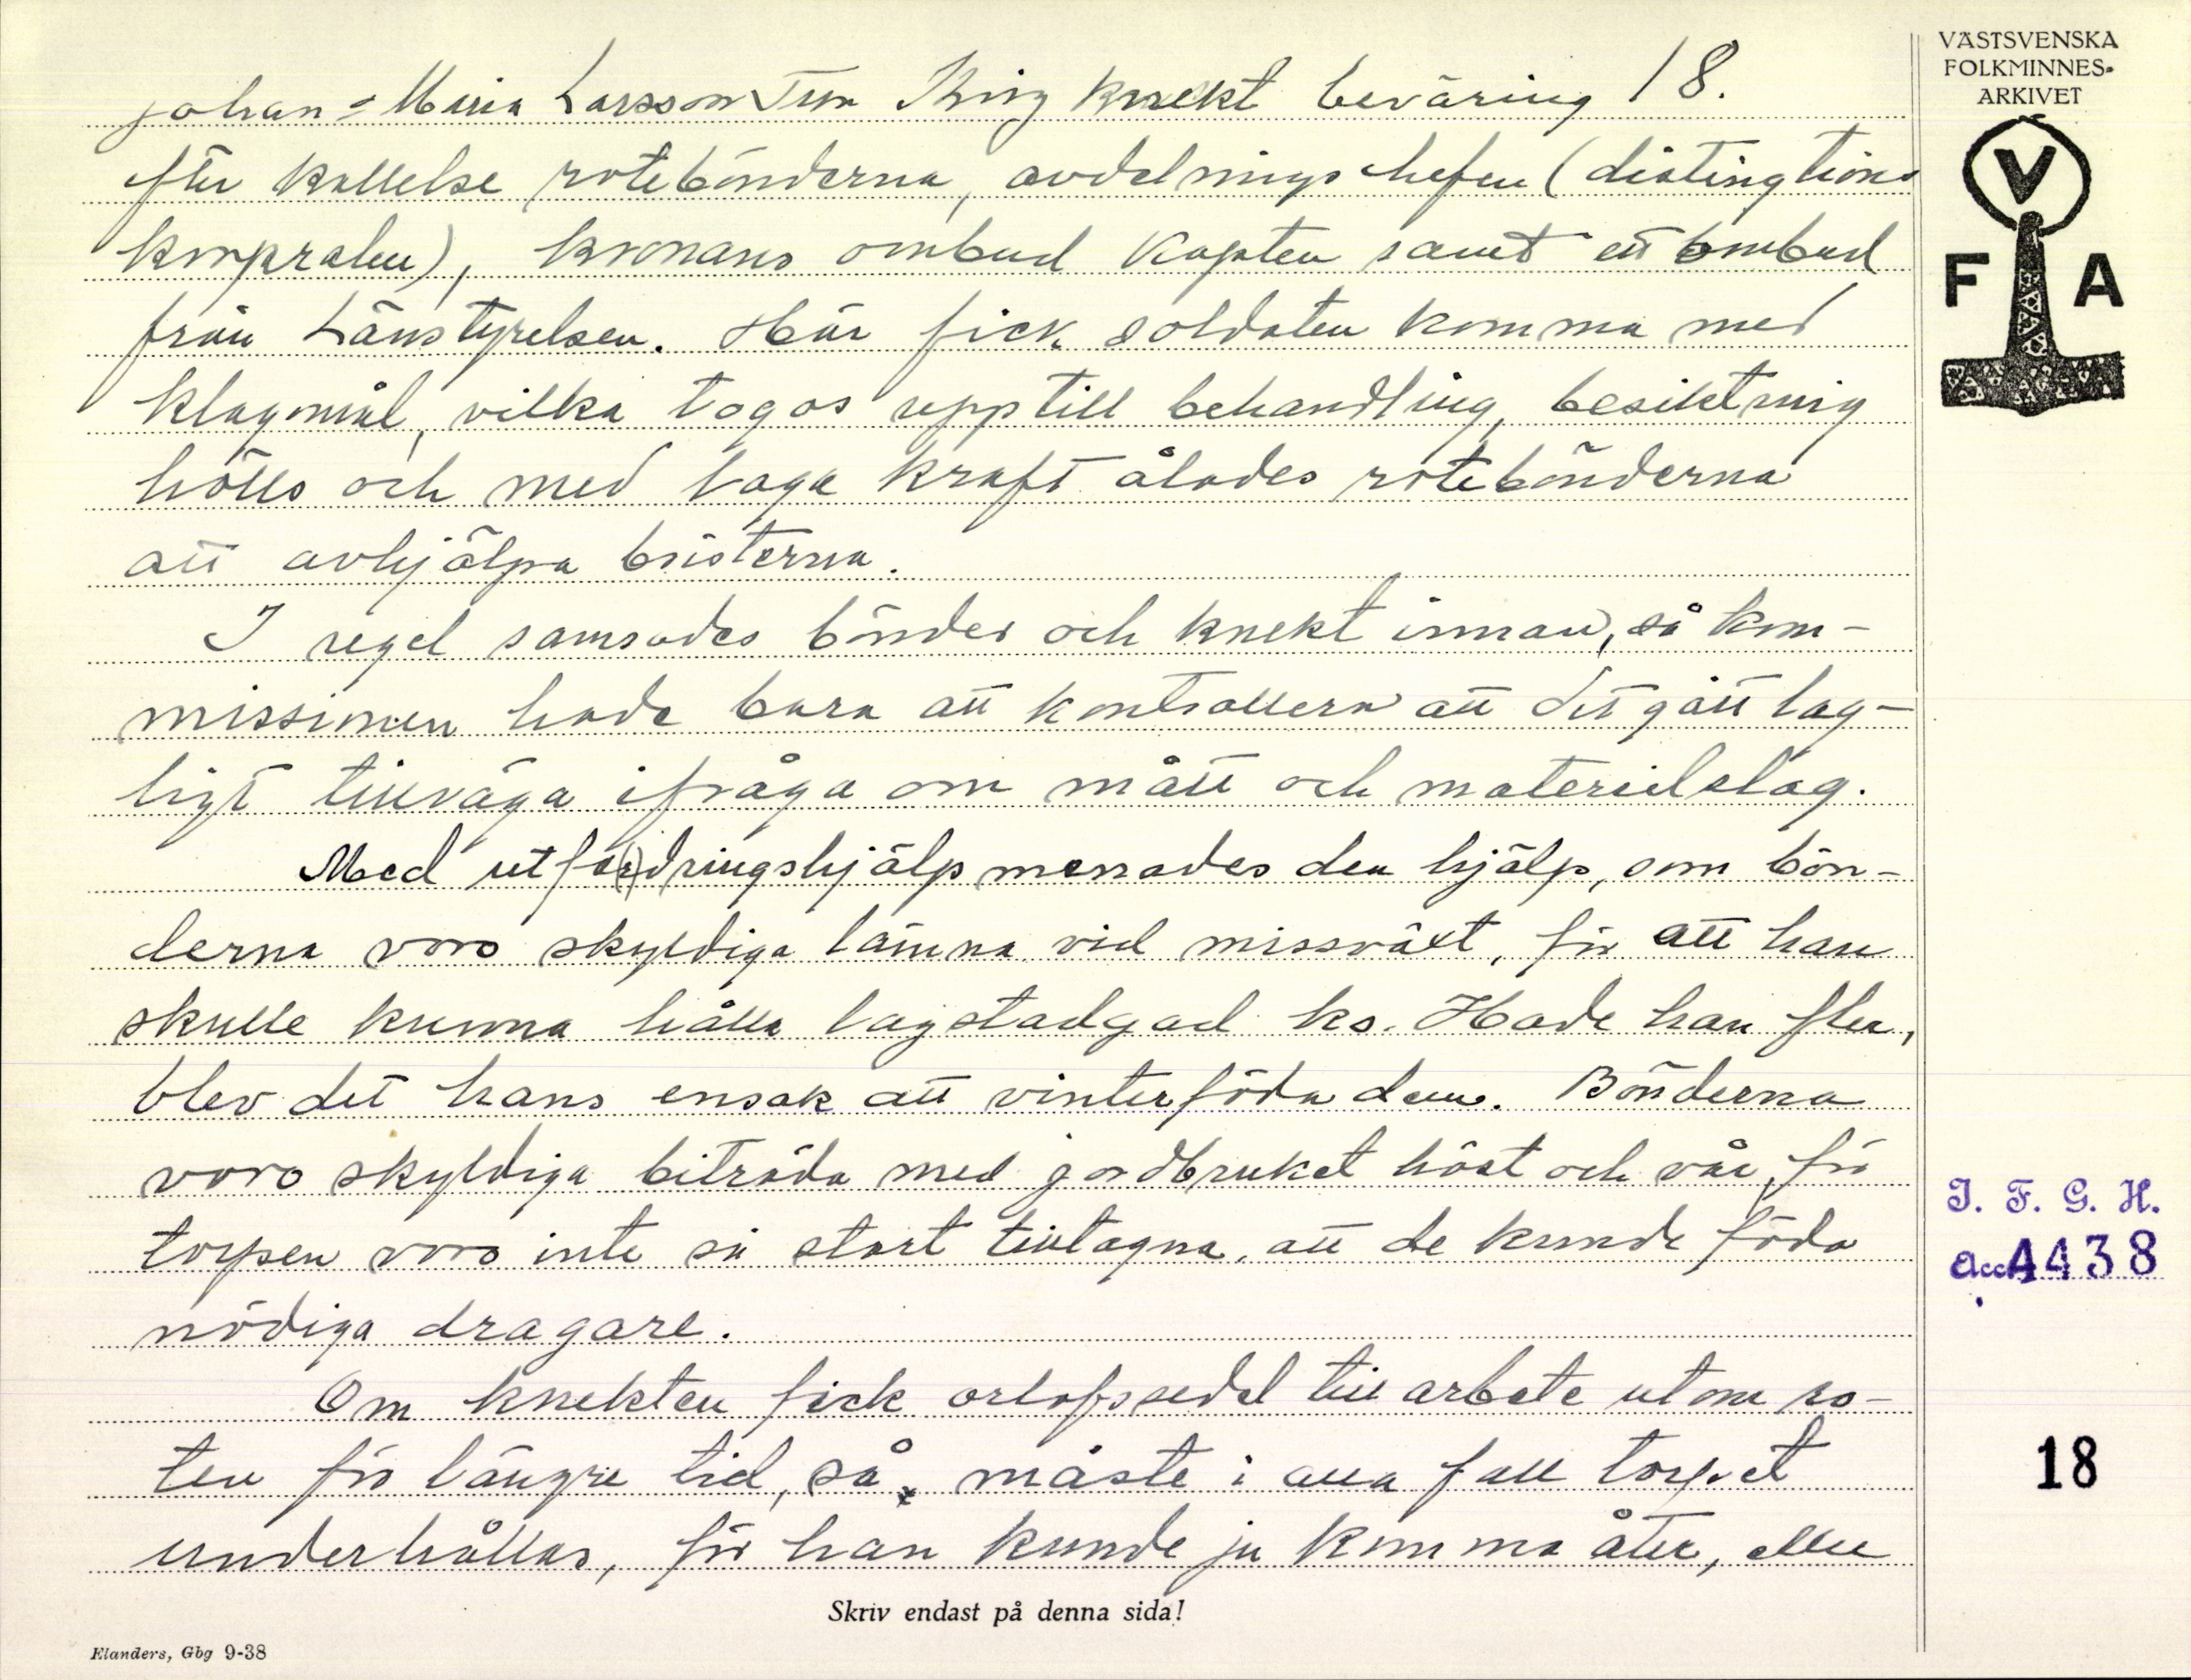 Johan-Maria Larsson Tun King knekt beväring 18.
efter kallelse rotebönderna, avdelningschefen (distingtions
korpralen), kronans ombud kapten samt ett ombud
från Länstyrelsen. Här fick soldaten komma med
klagomål, vilka togos upp till behandling, besiktning
hölls och med laga kraft ålades rotebönderna
att avhjälpa bristerna.
I regel samsades bönder och knekt innan, så kom-
missionen hade bara att kontrollera att det gått lag-
ligt tillväga ifråga om mått och materielslag.
Med utfo(r)dringshjälp menades den hjälp, som bön-
derna voro skyldiga lämna vid missväxt, för att han
skulle kunna hålla lagstadgad ko. Hade han fler,
blev det hans ensak att vinterföda dem. Bönderna
voro skyldiga biträda med jordbruket höst och vår, för
torpen voro inte så stort tilltagna, att de kunde föda
nödiga dragare.
Om knekten fick orlofssedel till arbete utom ro-
ten för längre tid, så måste i alla fall torpet
underhållas, för han kunde ju komma åter, eller
Skriv endast på denna sida!
Elanders, Gbg 9-38
VÄSTSVENSKA
FOLKMINNES-
ARKIVET
V
F A
I. F. G. H.
Acc 4438
18